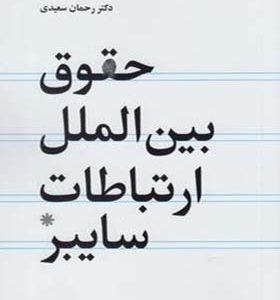 دکتر رحمان سعیدی
حقوق
بین‌الملل
ارتباطات
سایبر*